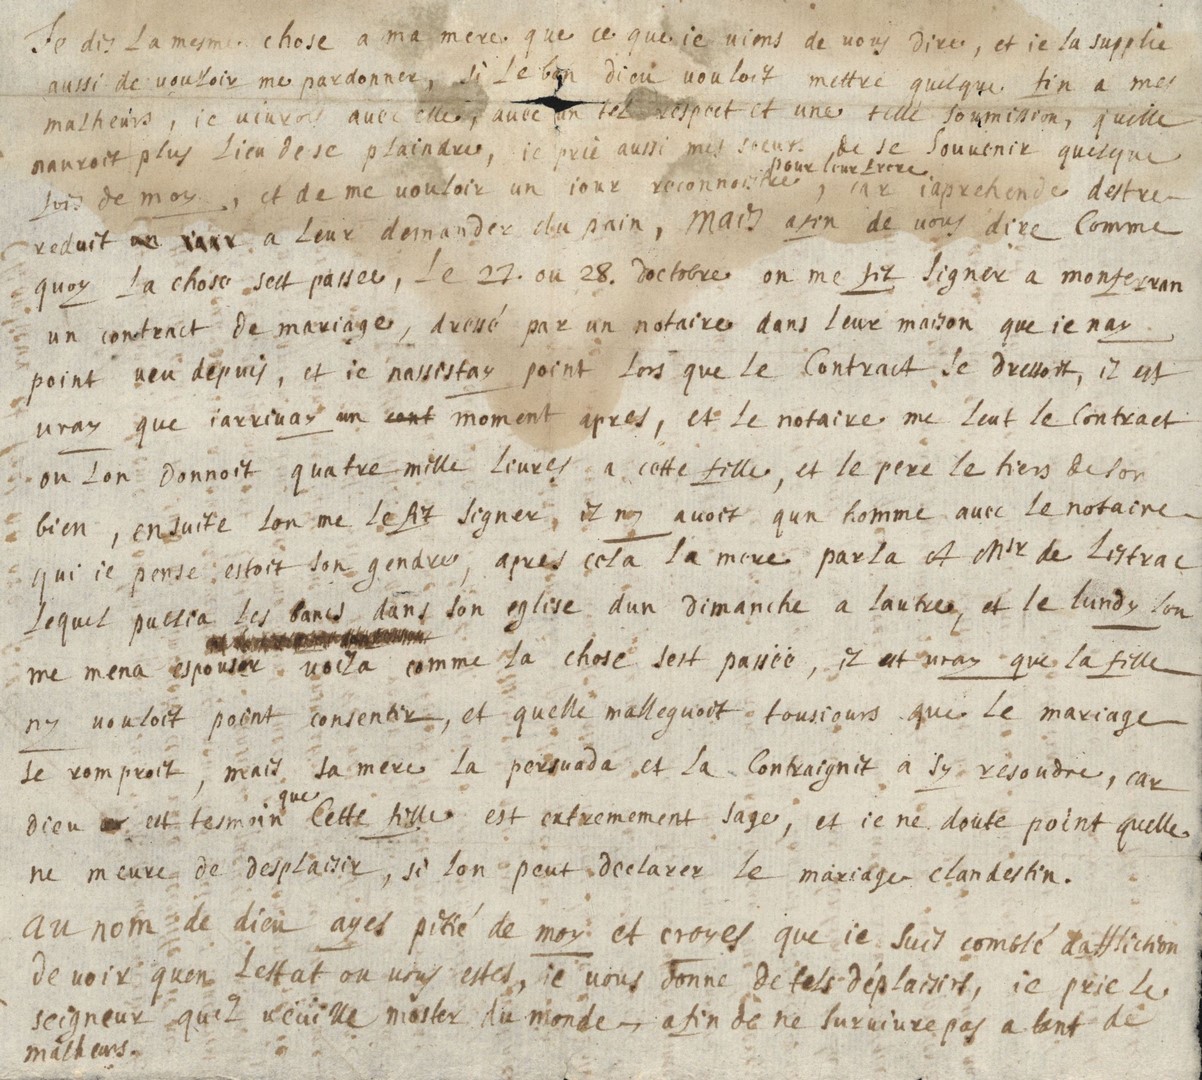 Je dis La mesme chose a ma mere que ce que ie viens de vous dire, et ie la supplie
aussi de vouloir me pardonner, si Le bon dieu vouloit mettre quelque fin a mes
malheurs, ie viurois auec elle, auec un tel respect et une telle soumission, quelle
nauroit plus Lieu de se plaindre, ie prie aussi mes soeurs de se souuenir quelque
fois de moy, et de me vouloir un iour reconnoistre pour leur frere, car iaprehende destre
reduit a Leur demander du pain, Mais afin de vous dire Comme
quoy La chose sest passee, Le 27. ou 28. doctobre on me fit signer a monferran
un contract de mariage, dressé par un notaire dans leur maison que ie nay
point veu depuis, et ie nassistay point Lors que Le Contract se dressoit, il est
vray que iarriuay un cont moment apres, et Le notaire me Leut le Contract
ou Lon donnoit quatre mille Liures a cette fille, et le pere le tiers de son
bien, ensuite Lon me le fit signer, il ny avoit qun homme avec Le notaire
qui ie pense estoit son gendre, apres cela La mere parla A Msr de Listrac
Lequel publia Les bancs dans son eglise dun dimanche a lautre, et le lundy Lon
me mena espouser voila comme La chose sest passée, il est vray que la fille
ny vouloit point consentir, et quelle malleguoit tousiours que Le mariage
se romproit, mais sa mere la persuada et la Contraignit a sy resoudre, car
dieu est tesmoin que Cette fille est extremement sage, et ie ne doute point quelle
ne meure de desplaisir, si lon peut declarer le mariage clandestin.
Au nom de dieu ayes pitié de moy et croyes que ie suis comblé daffliction
de voir quen Lestat ou vous estes, ie vous donne de tels déplaisirs, ie prie le
seigneur quil veuille moster du monde afin de ne suruiure pas a tant de
malheurs.